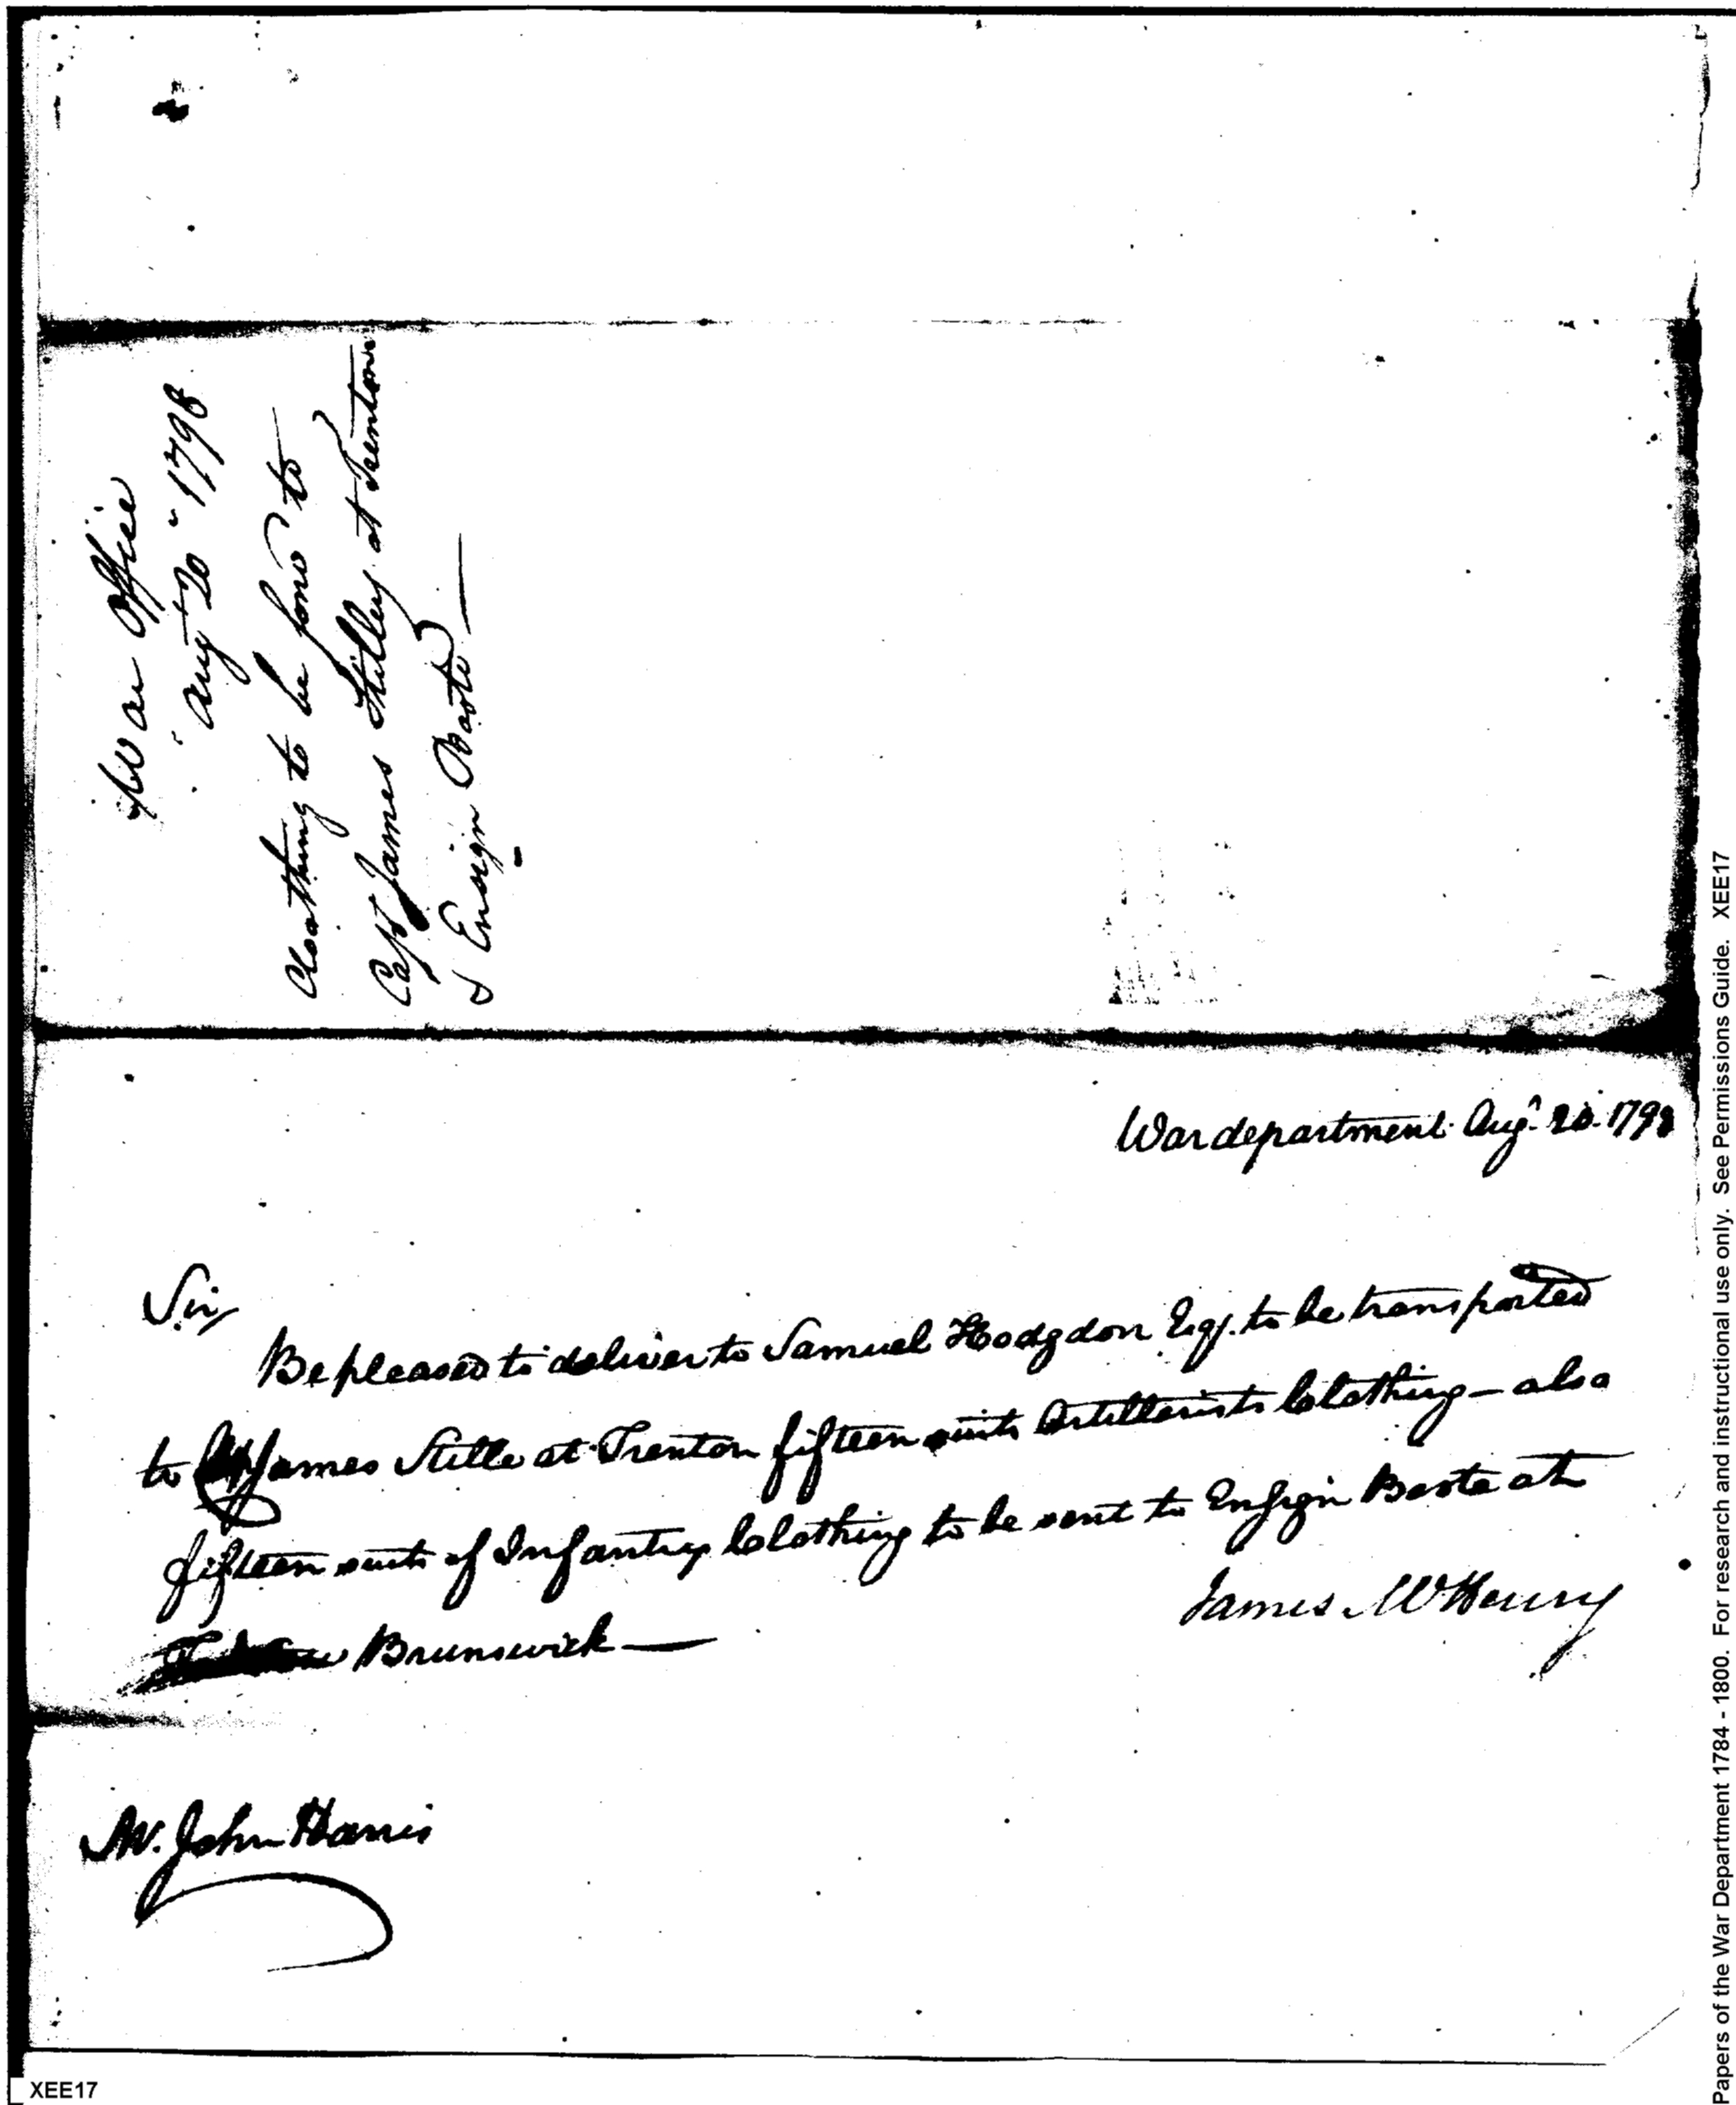 War Office
Augt 20th 1798
Cloathing to be forwd to
Capt James Stilley at Trenton
& Ensign Barte —
War department Augt. 20. 1798
Sir,
Be pleased to deliver to Samuel Hodgdon Esqr. to be transported
to James Stille at Trenton fifteen suits Artillerists Clothing – also
fifteen suits of Infantry Clothing to be sent to Ensign Barte at
Brunswick —
James McHenry
Mr. John Harris
XEE17
Papers of the War Department 1784 - 1800. For research and instructional use only. See Permissions Guide. XEE17